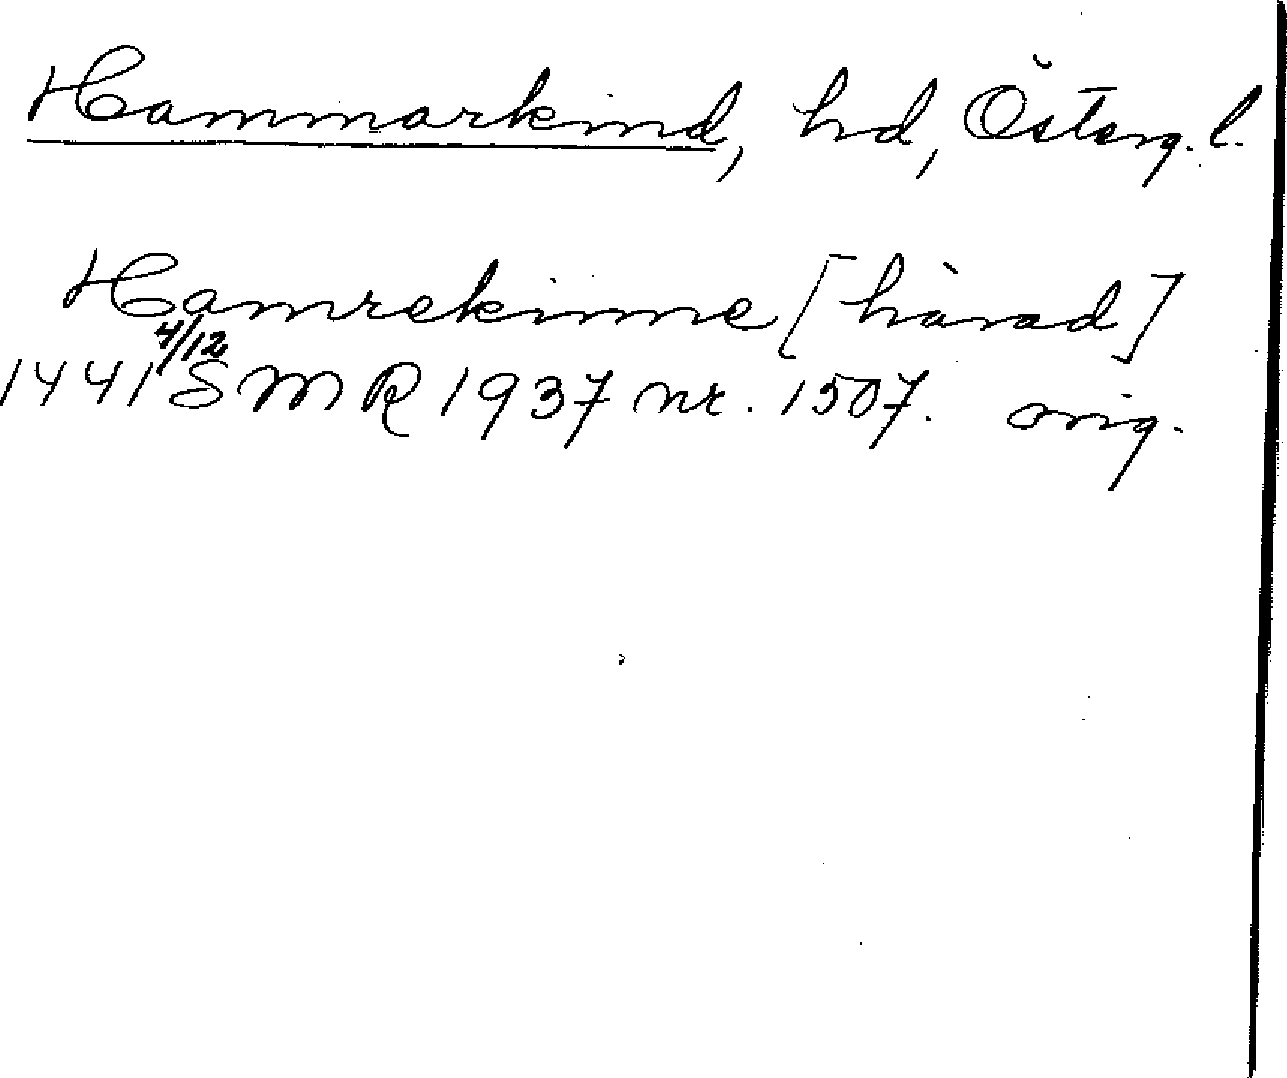 Hammarkind, hd, Österg. l.
Hamrekinne [härad]
1441 4/12 SMR 1937 nr. 1507. orig.